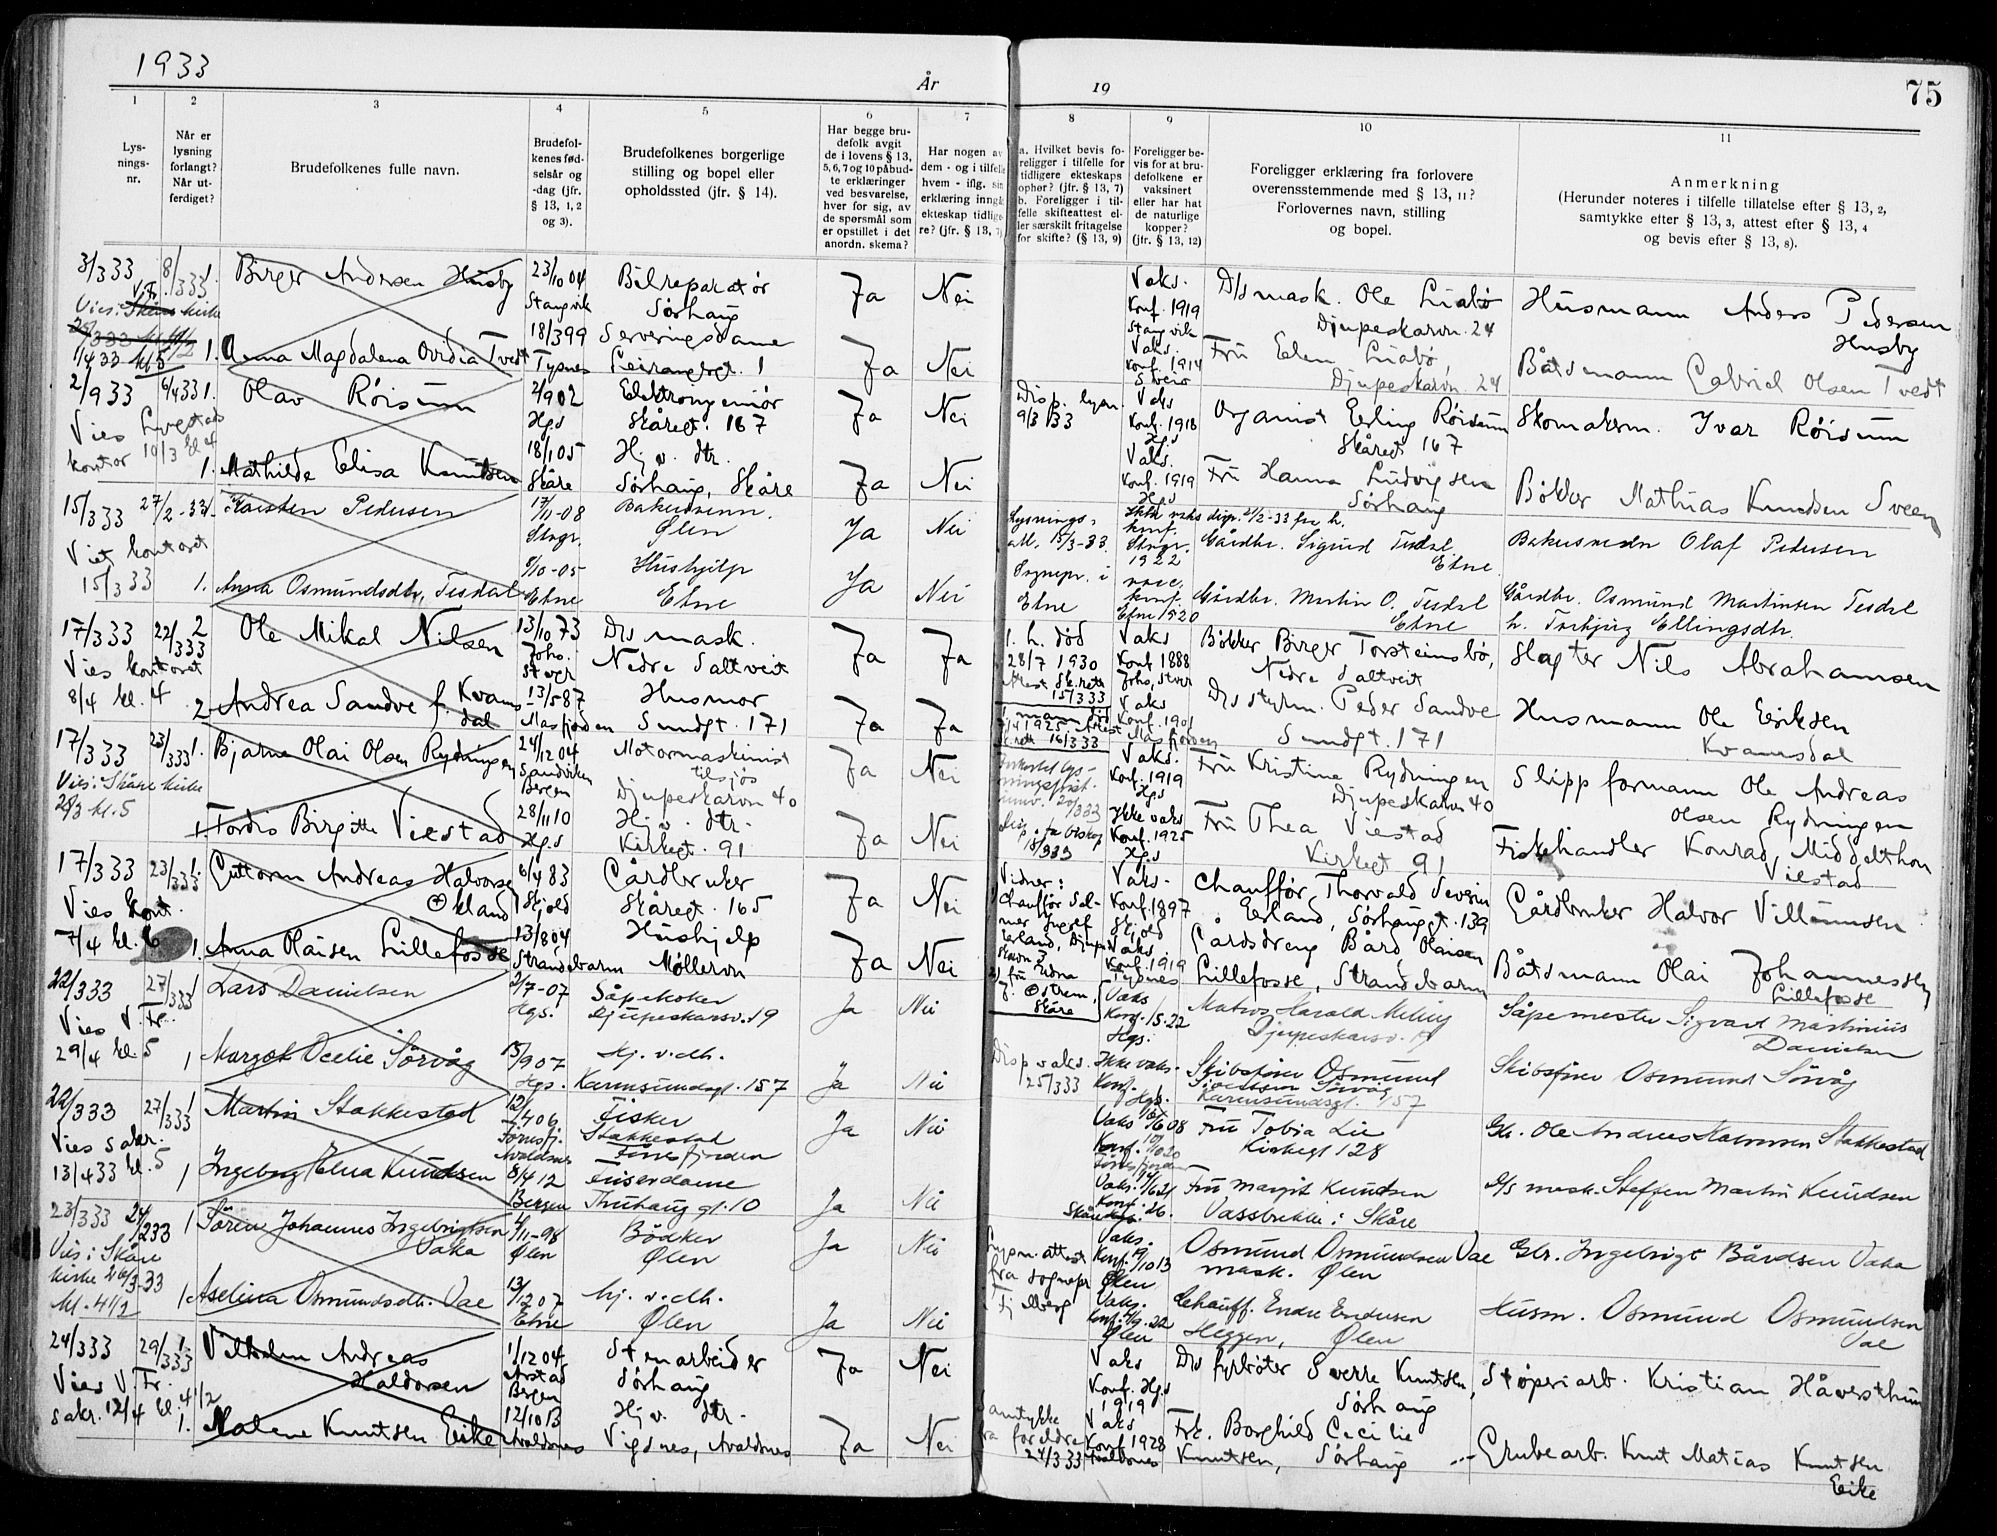 1933
År
19
75
1
2
3
4
5
6
7
8
9
10
11
Lys-
nings-
nr.
Når er
lysning
forlangt?
Når ut-
ferdiget?
Brudefolkenes fulle navn.
Brudefol-
kenes fød-
selsår og
-dag (jfr.
§ 13, 1, 2
og 3).
Brudefolkenes borgerlige
stilling og bopel eller
opholdssted (jfr. § 14).
Har begge bru-
defolk avgit
de i lovens § 13,
5, 6, 7 og 10 påbud-
te erklæringer
ved besvarelse,
hver for sig, av
de spørsmål som
er opstillet i det
anordn. skema?
Har nogen av
dem - og i tilfelle
hvem - iflg. sin
erklæring inngå
ekteskap tidlige-
re? (jfr. § 13, 7)
a. Hvilket bevis fo-
religger i tilfelle for
tidligere ekteskaps
ophør? (jfr. § 13, 7)
b. Foreligger i til-
felle skifteattest el-
ler særskilt fritagelse
for skifte? (§ 13, 9)
Foreligger be-
vis for at bru-
defolkene er
vaksinert
eller har hat
de naturlige
kopper?
(jfr. § 13, 12)
Foreligger erklæring fra forlovere
overensstemmende med § 13, 11?
Forlovernes navn, stilling
og bopel.
Anmerkning
(Herunder noteres i tilfelle tillatelse efter § 13, 2,
samtykke efter § 13, 3, attest efter § 13, 4
og bevis efter § 13, 8).
3/3 33 8/3 33 1. Birger Andersen Husby 23/10 04 Bilreparatør Ja Nei Vaks. D/s mask. Ole Liabø Husmann Anders Pedersen
Stangvik Sørhaug Konf. 1919 Djupeskarvn. 24 Husby
Stangvik
1/4 33 kl 5 1. Anna Magdalena Ovidia Tvedt 18/3 99 Serveringsdame Ja Nei Vaks. Fru Elen Liabø Båtsmann Gabriel Olsen Tvedt
Tysnes 1 Konf. 1914 Djupeskarvn. 24
Sveio
2/3 33 6/4 33 1. Olav Røisum 2/9 02 Elektroingeniør Ja Nei Disp. lysn. Vaks Organist Erling Røisum Skomakerm. Ivar Røisum
Vies Hgs Skåregt. 167 9/3 33 Konf. 1918 Skåregt 167
Hgs
kontor 10/3 kl 4 1. Mathilde Elisa Knudsen 18/1 05 Hj. v. dtr. Ja Nei Vaks. Fru Hanna Ludvigsen Bøkker Mathias Knudsen Sveen
Skåre Sørhaug, Skåre Konf. 1919 Sørhaug
Hgs
15/3 33 27/2-33 1. Karsten Pedersen 17/11-08 Bakersvenn. Ja Nei Lysnings- Ikke vaks disp. 21/2-33 fra h. Bakermester Olaf Pedersen
Viet kontoret Stvgr. Ølen att. 15/3-33. konf. Stvgr. 1922 Gårdbr. Sigurd Tesdal Etne
15/3 33 1. Anna Osmundsdtr. Tesdal 9/10-05 Hushjelp Ja Nei Sognepr. i vacc. Gårdbr. Martin O. Tesdal Gårdbr. Osmund Martinsen Tesdal
Etne Etne Etne konf. Etne 1920 Etne h. Torbjørg Ellingsdtr.
17/3 33 22/3 33 2 Ole Mikal Nilsen 13/10 73 D/s mask. Ja Ja 1. h. død Vaks Bøkker Birger Torsteinsbø, Slagter Nils Abrahamsen
Vies kontoret Johs. Stvgr Nedre Saltveit 28/7 1930 Konf 1888 Nedre Saltveit
Attest Sk.rett 15/3 33 Johs, Stvgr
8/4 kl. 4 2 Andrea Sandve f. Kvamsdal 13/5 87 Husmor Ja Ja Vaks D/s styrm. Peder Sandve Husmann Ole Eriksen
Masfjorden Sundgt. 171 1925. Attest Konf. 1901 Sundgt. 171 Kvamsdal
Sk.rett 16/3 33 Masfjorden
17/3 33 23/3 33 1. Bjarne Olai Olsen Rydningen 24/12 04 Motormaskinist Ja Nei Vaks. Fru Kristine Rydningen Slippformann Ole Andreas
Vies: Skåre kirke Sandviken Bergen tilsjøs Konf. 1919 Djupeskarvn 40 Olsen Rydningen
28/3 kl. 5 Djupeskarvn 40 Hgs
1 Tordis Birgitte Viestad 28/11 10 Hj. v. dtr. Ja Nei Ikke vaks Fru Thea Viestad Fiskehandler Konrad Middelthon
Hgs Kirkegt. 91 Konf. 1925 Kirkegt 91 Viestad
Hgs
17/3 33 23/3 33 1. Guttorm Andreas Halvorsen 6/4 83 Gårdbruker Ja Nei Vidner: Vaks. Chauffør Thorvald Severin Gårdbruker Halvor Villumsen
Vies kont. Økland Skjold Skåregt. 165 Chauffør Konf. 1897 Erland, Sørhauggt. 139
Skjold
7/4 kl. 6 1. Anna Olaisen Lillefosse 13/8 04 Hushjelp Ja Nei Erland, Djupe- Vaks Gårdsdreng Bård Olaisen Båtsmann Olai Johannessen
Strandebarm Møllervn skarvn 3 Konf. 1919 Lillefosse, Strandebarm Lillefosse
Tysnes
22/3 33 27/3 33 1 Lars Danielsen 2/7-07 Såpekoker Ja Nei Østrem, Skåre Vaks Matros Harald Meling Såpemester Sigvart Martinius
Vies V. Fr. Hgs. Djupeskarsv. 19 Konf. 15.22 Djupeskarsv. 19 Danielsen
Hgs.
29/4 kl. 5 1 Margot Ocelie Sørvåg 15/9 07 Hj. v. dtr. Ja Nei Disp vaks. Ikke vaks. Skibsfører Osmund Skibsfører Osmund Sørvåg
Hgs. Karmsundsgt. 157 25/3 33 Konf. Hgs. Sivertsen Sørvåg
Karmsundsgt. 157
22/3 33 27/3 33 1 Martin Stakkestad 12/4 06 Fisker Ja Nei Vaks 08 Fru Tobia Lie Gbr. Ole Andreas Stakkestad
Vies sakr. Førresfj. Avaldsnes Stakkestad Førresfjorden Konf. 20 Kirkegt 128
13/4 33 kl. 5 1 Ingeborg Elna Knudsen 8/4 12 Friserdame Ja Nei Vaks. Fru Margit Knudsen D/s mask. Steffen Martin Knudsen
Bergen Thuhaug gt. 10 Konf. 26. Vassbrekke i Skåre
Skåre
23/3 33 24/2 33 1 Søren Johannes Ingebrigtsen 4/11-98 Bødker Ja Nei Lysn. attest Vaks. Osmund Osmundsen Vae Gbr. Ingebrigt Bårdsen Vaka
Vies i Skåre Vaka Ølen Ølen fra sognepr. Konf. 19/10 13 mask. Ølen
kirke 26/3-33 Ølen
kl. 4 1/2 1 Aselina Osmundsdtr. Vae 13/12 07 hj. v. dtr. Ja Nei Vaks. Chauff. Endre Endresen Husm. Osmund Osmundsen
Etne Ølen Konf. 22 Heggen, Ølen Vae
Ølen
24/3 33 29/3 33 1. Vilhelm Andreas 1/12 04 Stenarbeider Ja Nei Vaks D/s fyrbøter Sverre Knutsen, Støperiarb. Kristian Håversthun
Vies V. Fr. Haldorsen Årstad Bergen Sørhaug Konf. Hgs 1919 Sørhaug
sakr. 12/4 kl. 4 1/2 1. Malene Knutsen Eike 12/10 13 Hj. v. dtr. Ja Nei Samtykke Vaks Frk. Borghild Cecilie Grubearb. Knut Matias Knutsen
Avaldsnes Vigsnes, Avaldsnes fra foreldre Konf 1928 Knutsen, Sørhaug Eike
24/3 33 Avaldsnes